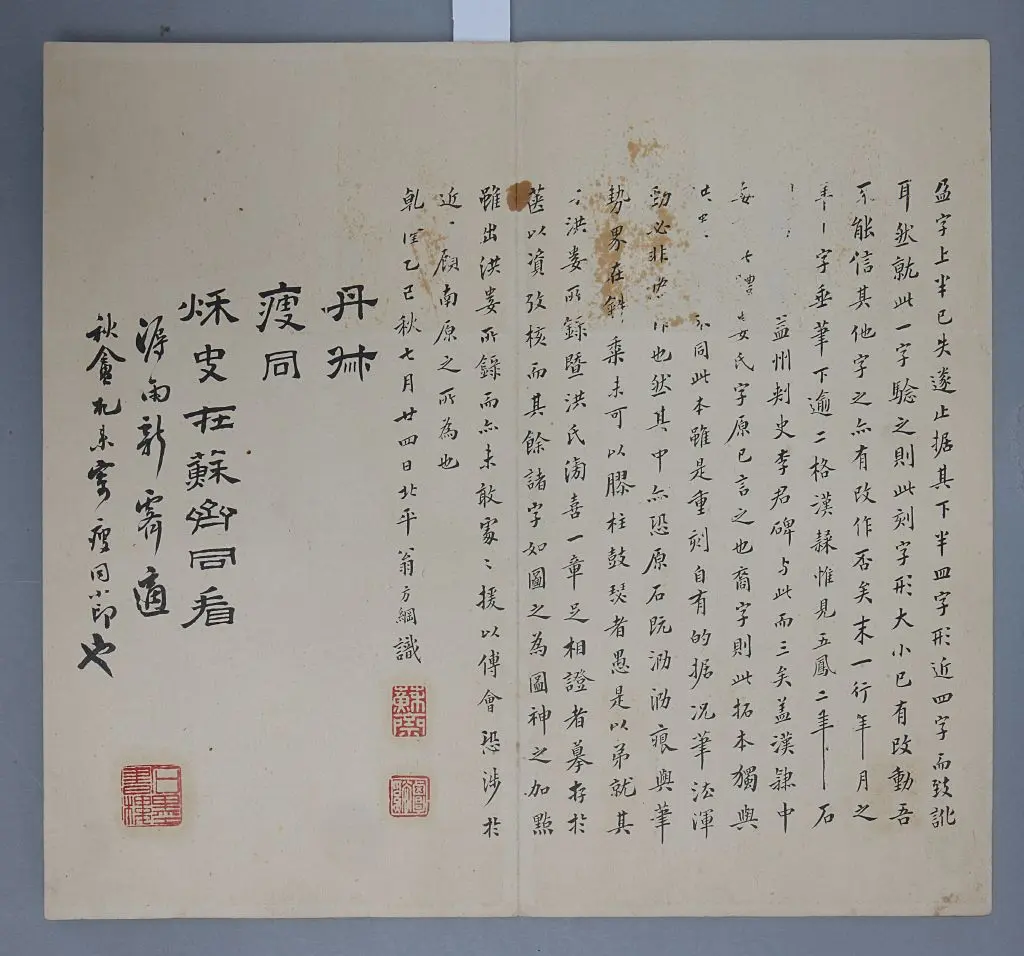 盈字上半已失遂止据其下半四字形近四字而致訛
耳然就此一字驗之則此刻字形大小已有改動吾
不能信其他字之亦有改作否矣末一行年月之
年一字垂筆下逾二格漢隸惟見五鳳二年一石
益州刺史李君碑与此而三矣蓋漢隸中
每 禮 婁氏字原已言之也裔字則此拓本獨與
不同此本雖是重刻自有的据况筆法渾
勁必非 作也然其中亦恐原石既泐泐痕與筆
勢界在 未可以膠柱鼓瑟者愚是以弟就其
洪婁所錄暨洪氏滴喜一章足相證者摹存於
舊以資攷核而其餘諸字如圖之為圖神之加點
雖出洪婁所錄而亦未敢處〻援以傅會恐涉於
近 顧南原之所為也
乾 乙巳秋七月廿四日北平翁方綱識
蘇齋
丹 
瘦同
秋史在蘇齋同看
雨新霽適
秋盦札來寄瘦同小印也